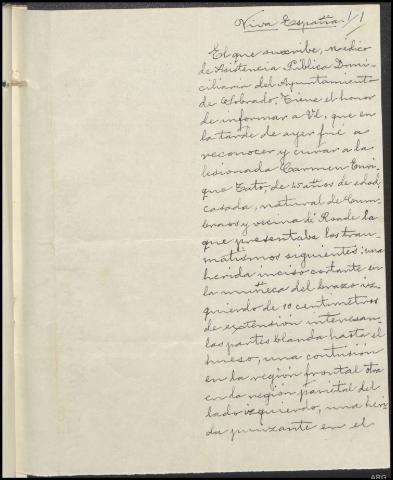 Viva España!!
El que suscribe, Médico
de Asistencia Pública Domi-
ciliaria del Ayuntamiento
de Sobrado, tiene el honor
de informar a Vd, que en
la tarde de ayer fué a
reconocer y curar a la
lesionada Carmen Enri-
que Tato, de 45 años de edad,
casada, natural de Cum-
braos y vecina de Roade la
que presentaba los trau-
matismos siguientes: una
herida inciso cortante en
la muñeca del brazo iz-
quierdo de 10 centimetros
de extensión interesan
las partes blanda hasta el
hueso, una contusión
en la región frontal otra
en la región parietal del
lado izquierdo, una heri
da punzante en el
ARG